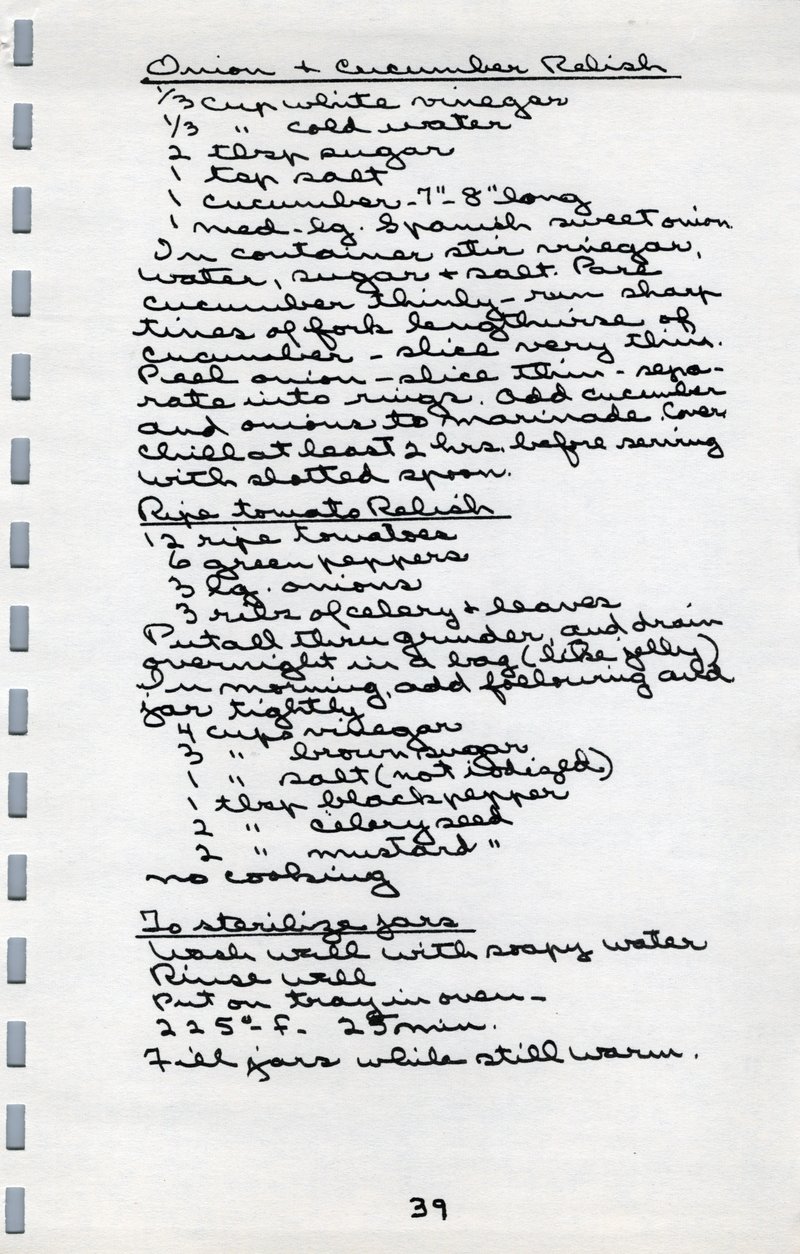 Onion + Cucumber Relish
1/3 cup white vinegar
1/3 " cold water
2 tbsp sugar
1 tsp salt
1 cucumber - 7"- 8" long
1 med-lg. Spanish sweet onion.
In container stir vinegar,
water, sugar + salt. Pare
cucumber thinly - run sharp
tines of fork lengthwise of
cucumber - slice very thin.
Peel onion - slice thin - sepa-
rate into rings. Add cucumber
and onions to marinade. Cover,
chill at least 2 hrs. before serving
with slotted spoon.
Ripe tomato Relish
12 ripe tomatoes
6 green peppers
3 lg. onions
3 ribs of celery + leaves
Put all thru grinder, and drain
overnight in a bag (like jelly)
In morning, add following and
jar tightly
4 cups vinegar
3 " brown sugar
1 " salt (not iodized)
1 tbsp black pepper
2 " celery seed
2 " mustard "
no cooking
To sterilize jars
Wash well with soapy water
Rinse well
Put on tray in oven -
225° - F. - 25 min.
Fill jars while still warm.
39